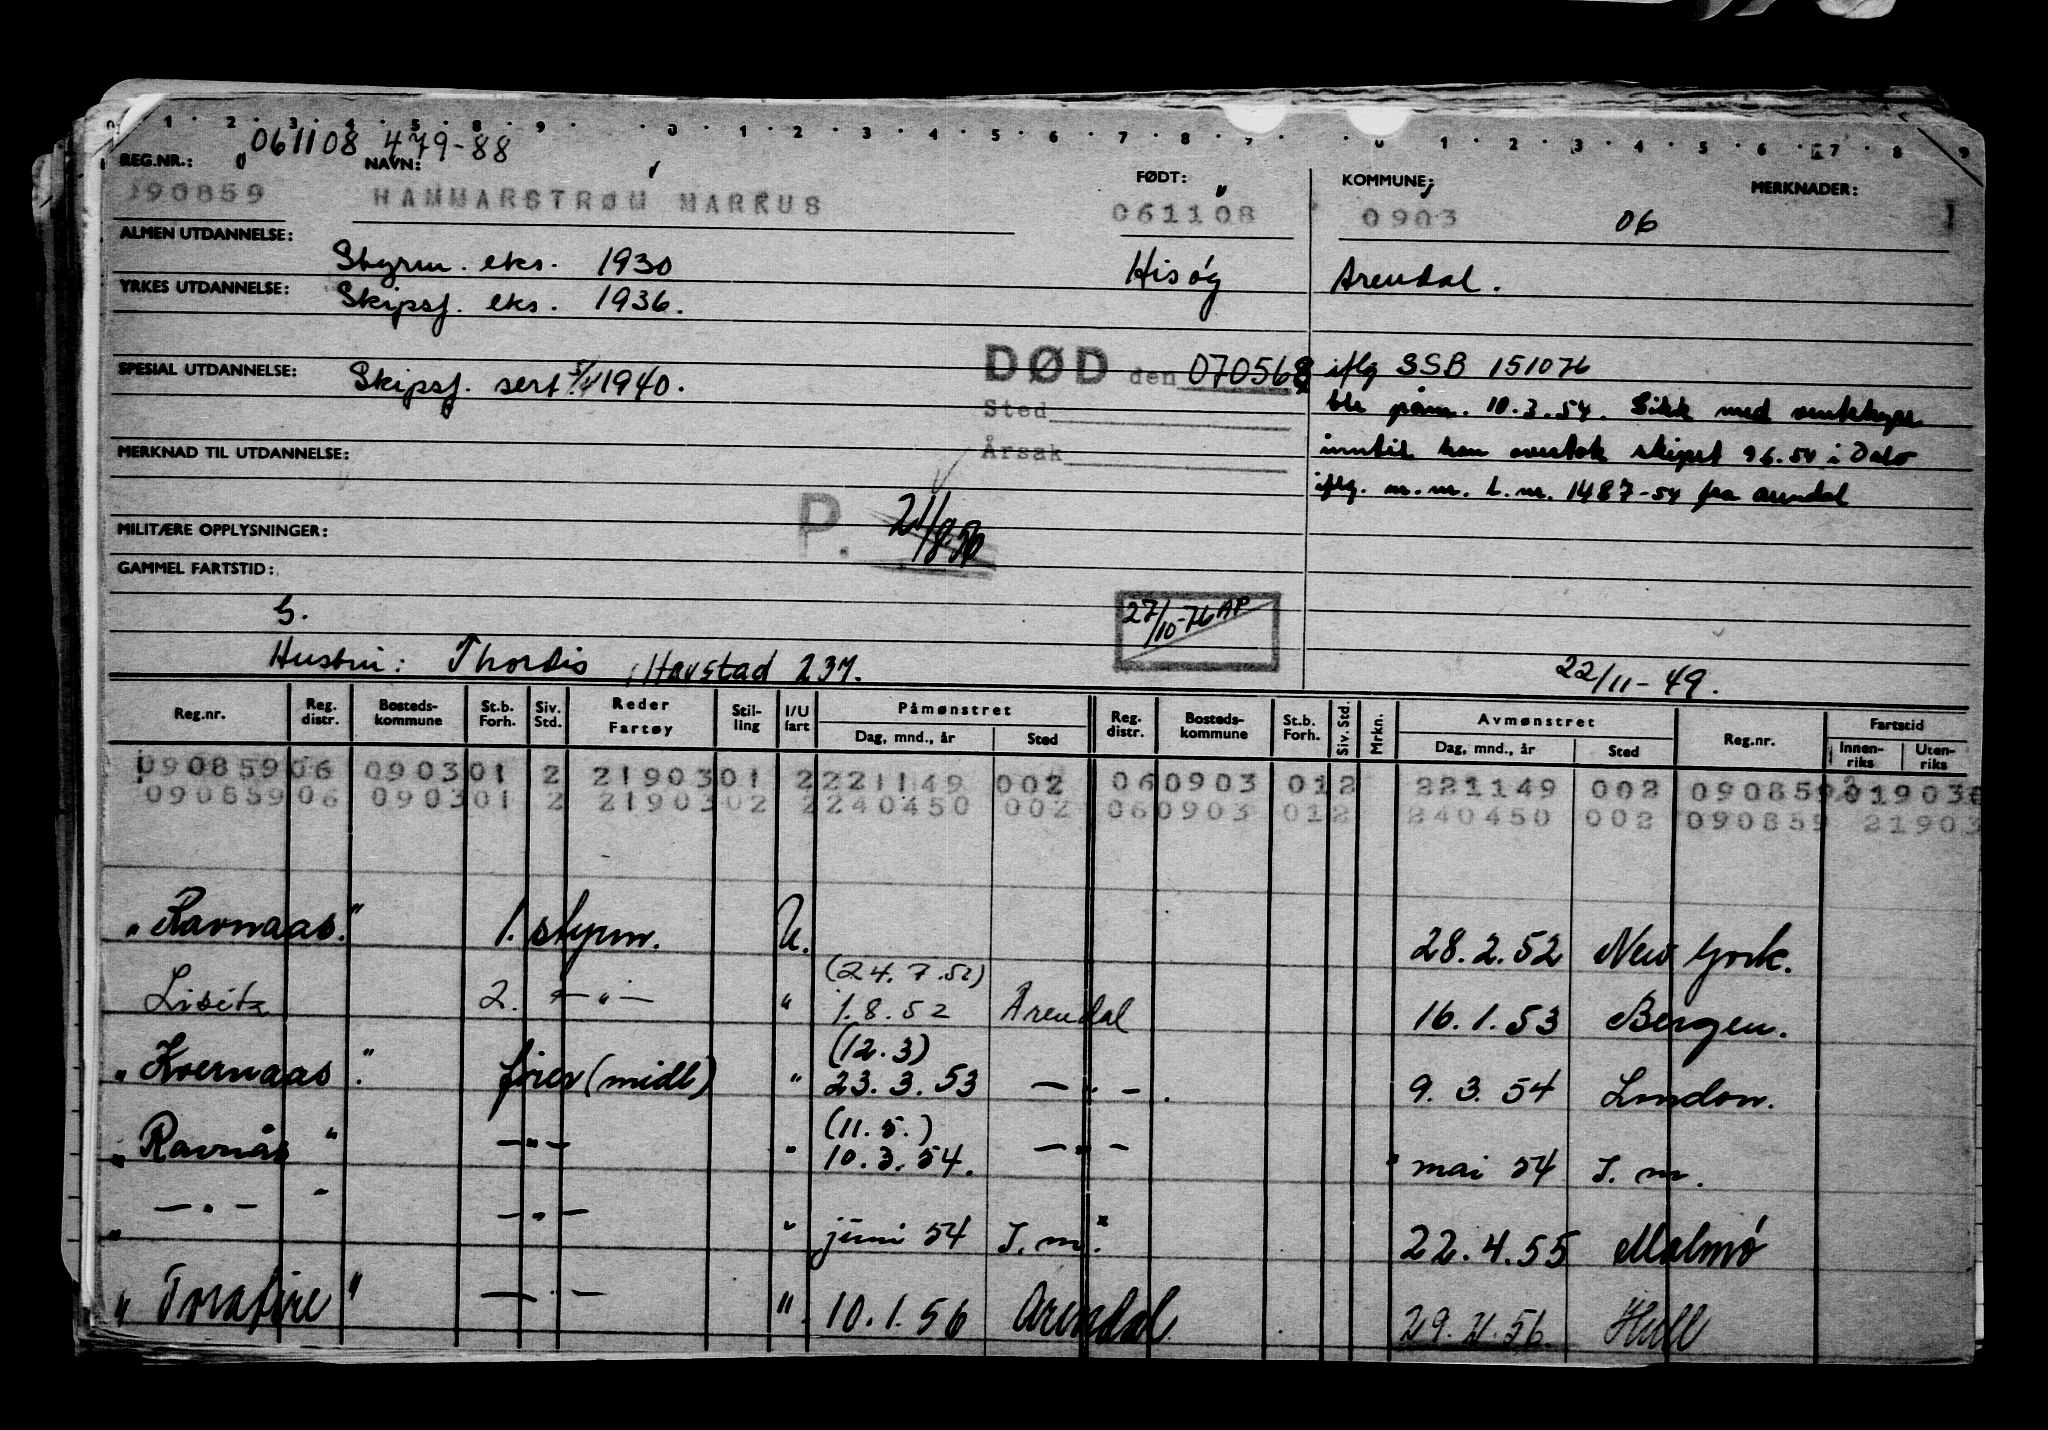 0 1 2 3 4 5 8 9 0 1 2 3 4 5 6 7 8 9 0 1 2 3 4 5 6 7 8 9
061108 479-88
REG.NR.: NAVN: FØDT: KOMMUNE: MERKNADER:
090859 HAMMARSTRØM MARKUS 061108 0903 06 1
ALMEN UTDANNELSE: Styrm. eks. 1930 Hisøy Arendal.
YRKES UTDANNELSE: Skipsf. eks. 1936.
SPESIAL UTDANNELSE: Skipsf. sert. 1940. DØD den 070568 iflg SSB 151076
Sted ble påm. 10.3.54. Gikk med
MERKNAD TIL UTDANNELSE: Årsak inntil han overtok skipet 9.6.54 i Oslo
iflg. m.m. L.nr. 1487-54 fra Arendal
P. 21/8 56
MILITÆRE OPPLYSNINGER:
GAMMEL FARTSTID:
G. 27/10-76 AP
Hustru: Thordis, Havstad 237. 22/11-49.
Reg.nr. Reg. distr. Bosteds-kommune St.b. Forh. Siv. Std. Reder Fartøy Stil-ling I/U fart Påmønstret Dag, mnd., år Sted Reg. distr. Bosteds-kommune St.b. Forh. Siv. Std. Mrkn. Avmønstret Dag, mnd., år Sted Reg.nr. Fartstid Innen-riks Uten-riks
090859 06 0903 01 2 21903 01 2 221149 002 06 0903 01 2 221149 002 090859 21903
090859 06 0903 01 2 21903 02 2 240450 002 06 0903 01 2 240450 002 090859 21903
"Ravnaas." 1. styrm. U. 28.2.52 New York.
(24.7.52)
2. —"— " 1.8.52 Arendal 16.1.53 Bergen.
(12.3)
"Kvernaas". fører (midl) " 23.3.53 —"—. 9.3.54 London.
(11.5.)
"Ravnås" —"— " 10.3.54. —"— " mai 54 I.m.
" —"— " —"— " juni 54 I.m." 22.4.55 Malmø
"Torafire" —"— " 10.1.56 Arendal 56 Hull